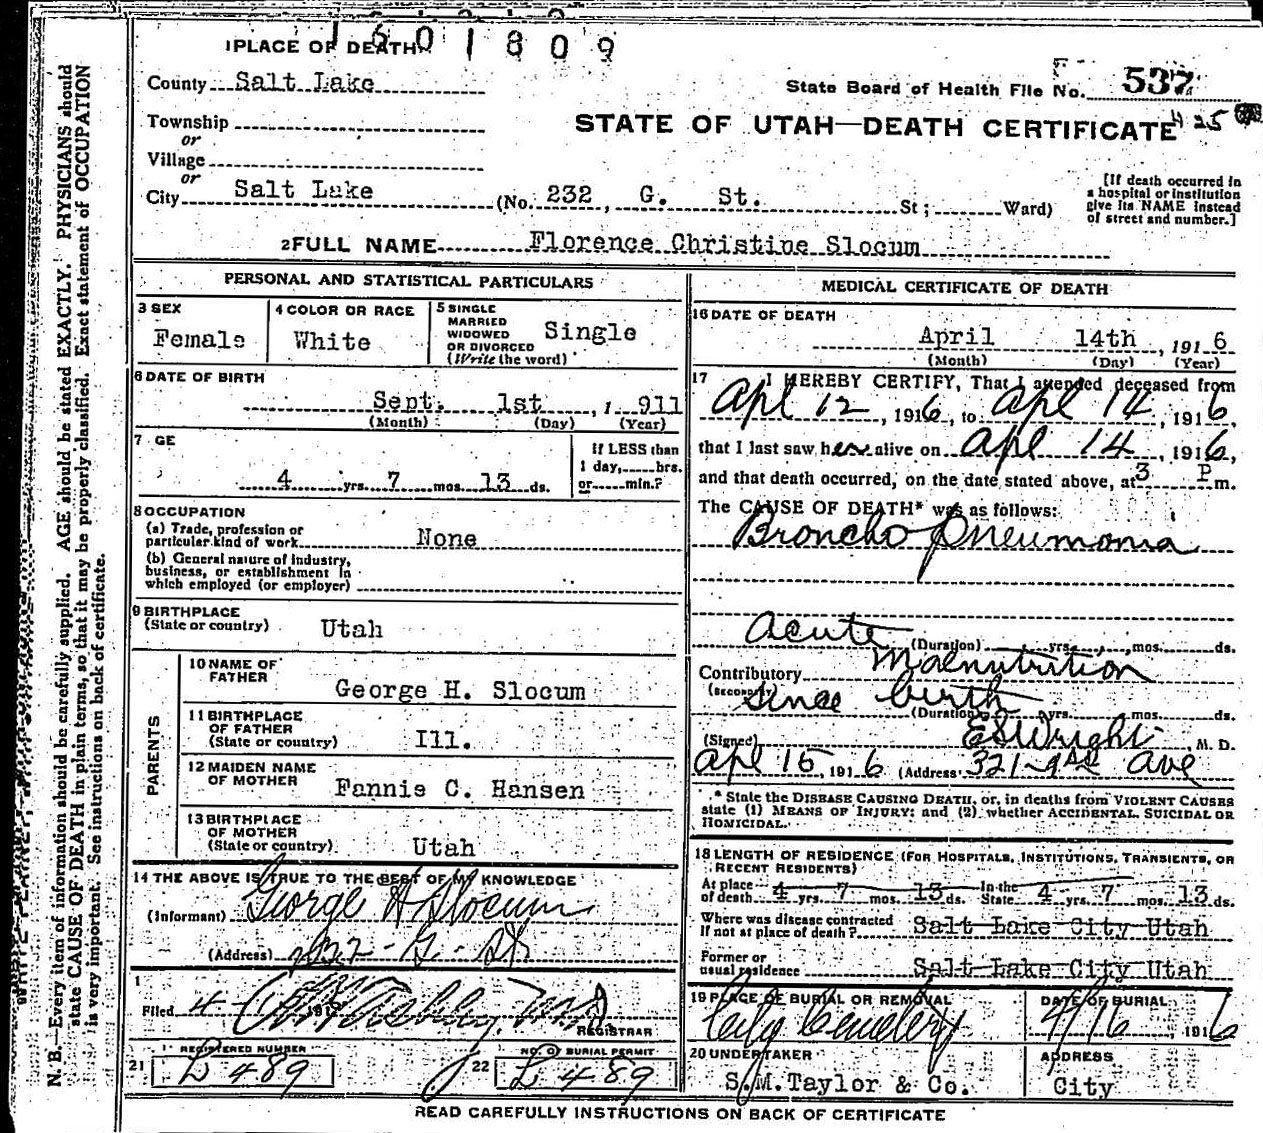 1601809
1 PLACE OF DEATH
County Salt Lake
State Board of Health File No. 537
Township
or
STATE OF UTAH—DEATH CERTIFICATE
Village
or
City Salt Lake (No. 232, G. St. St; Ward)
[If death occurred in a hospital or institution give its NAME instead of street and number.]
2 FULL NAME Florence Christine Slocum
PERSONAL AND STATISTICAL PARTICULARS
3 SEX
Female
4 COLOR OR RACE
White
5 SINGLE
MARRIED
WIDOWED
OR DIVORCED
(Write the word)
Single
6 DATE OF BIRTH
Sept. 1st, 1 911
(Month) (Day) (Year)
7 GE
4 yrs. 7 mos. 13 ds.
If LESS than
1 day, hrs.
or min.?
8 OCCUPATION
(a) Trade, profession or
particular kind of work None
(b) General nature of industry,
business, or establishment in
which employed (or employer)
9 BIRTHPLACE
(State or country) Utah
PARENTS
10 NAME OF
FATHER George H. Slocum
11 BIRTHPLACE
OF FATHER
(State or country) Ill.
12 MAIDEN NAME
OF MOTHER Fannie C. Hansen
13 BIRTHPLACE
OF MOTHER
(State or country) Utah
14 THE ABOVE IS TRUE TO THE BEST OF MY KNOWLEDGE
(Informant) George H Slocum
(Address) 232 - G - St
Filed 4
REGISTRAR
21 REGISTERED NUMBER
L 489
22 NO. OF BURIAL PERMIT
L 489
MEDICAL CERTIFICATE OF DEATH
16 DATE OF DEATH
April 14th, 191 6
(Month) (Day) (Year)
17 I HEREBY CERTIFY, That I attended deceased from
Apl 12, 1916, to Apl 14, 1916,
that I last saw her alive on Apl 14, 1916,
and that death occurred, on the date stated above, at 3 P m.
The CAUSE OF DEATH* was as follows:
Broncho Pneumonia
Acute
(Duration) yrs. mos. ds.
Contributory Malnutrition
(SECONDARY) Since birth
(Duration) yrs. mos. ds.
(Signed) E S Wright, M. D.
Apl 15, 191 6 (Address) 321-1st Ave
* State the DISEASE CAUSING DEATH, or, in deaths from VIOLENT CAUSES
state (1) MEANS OF INJURY; and (2) whether ACCIDENTAL, SUICIDAL OR
HOMICIDAL.
18 LENGTH OF RESIDENCE (FOR HOSPITALS, INSTITUTIONS, TRANSIENTS, OR
RECENT RESIDENTS)
At place
of death 4 yrs. 7 mos. 13 ds. In the
State 4 yrs. 7 mos. 13 ds.
Where was disease contracted
if not at place of death? Salt Lake City Utah
Former or
usual residence Salt Lake City Utah
19 PLACE OF BURIAL OR REMOVAL
City Cemetery
DATE OF BURIAL
4/16 1916
20 UNDERTAKER
S.M.Taylor & Co.
ADDRESS
City
READ CAREFULLY INSTRUCTIONS ON BACK OF CERTIFICATE
N. B.—Every item of information should be carefully supplied. AGE should be stated EXACTLY. PHYSICIANS should
state CAUSE OF DEATH in plain terms, so that it may be properly classified. Exact statement of OCCUPATION
is very important. See instructions on back of certificate.